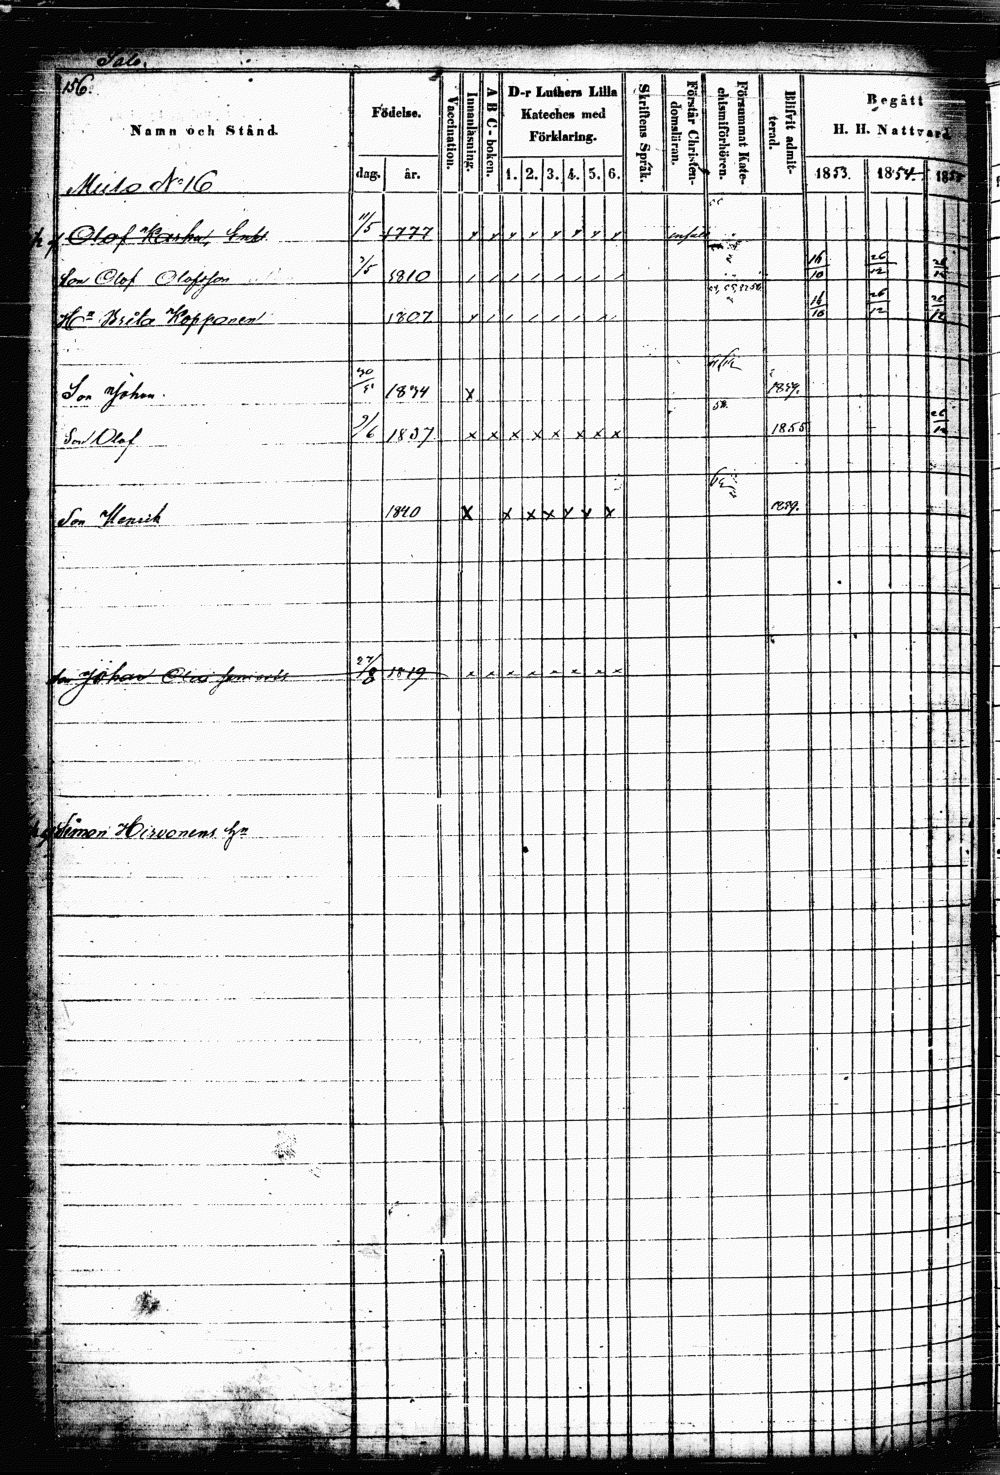 Salo.
156.
Namn och Stånd.
Födelse.
dag. år.
Vaccination.
Innanläsning.
A B C-boken.
D-r Luthers Lilla
Kateches med
Förklaring.
1. 2. 3. 4. 5. 6.
Skriftens Språk.
Förstår Christen-
domsläran.
Försummat Kate-
chismiförhören.
Blifvit admit-
terad.
Begått
H. H. Nattvard
1853. 1854.
No 16
Olof 11/5 1777
Son Olof Olofsson 1810 16/10 26/12 26/12
Hu Brita Kopponen 1807 16/10 26/12 26/12
Son Johan. 1834 x 1859.
Son Olof 9/6 1837 x x x x x x x x 1855 26/12
Son Henrik 1840 x x x x x x x 1859.
Son Johan 27/8 1819 x x x x x x x x
Simon Hirvonens hu